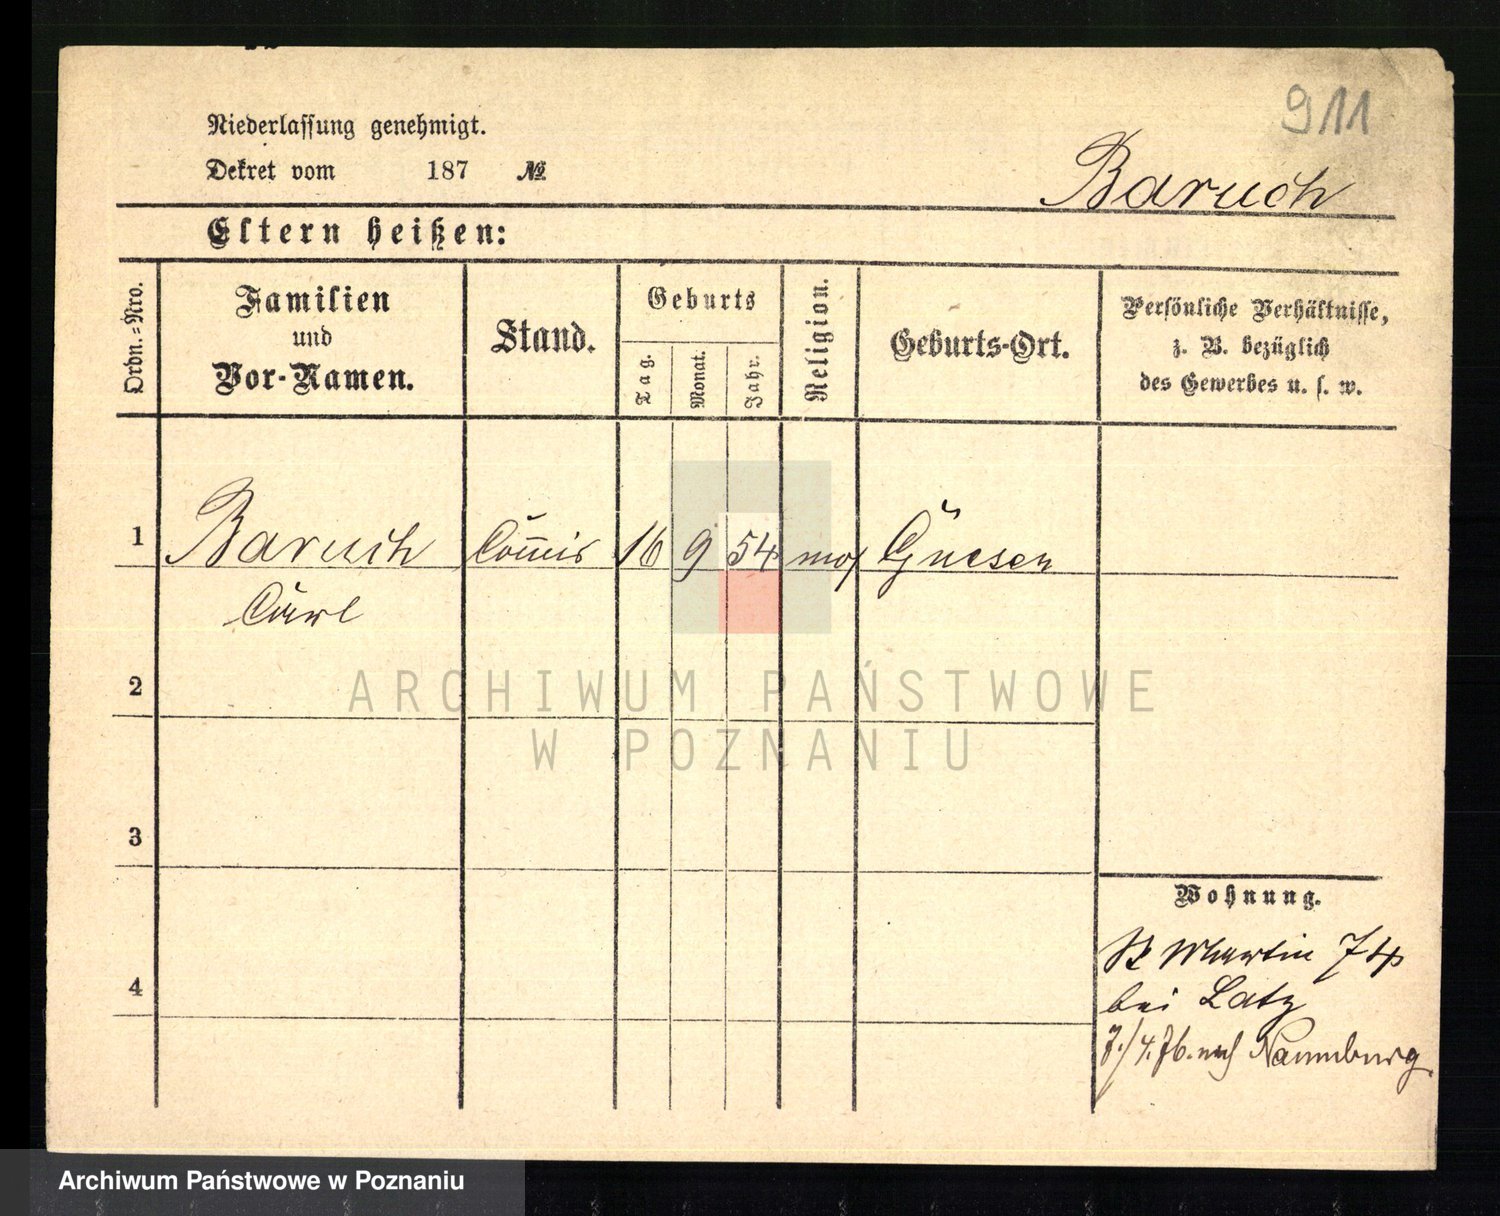 911
Niederlassung genehmigt.
Dekret vom 187 №
Baruch
Eltern heißen:
Ordn.=Nro.
Familien
und
Vor-Namen.
Stand.
Geburts
Tag.
Monat.
Jahr.
Religion.
Geburts-Ort.
Persönliche Verhältnisse,
z. B. bezüglich
des Gewerbes u. s. w.
1 Baruch Com̅is 16 9 54 mos Gnesen
Carl
2
3
4
ARCHIWUM PAŃSTWOWE
W POZNANIU
Wohnung.
St Martin 74
bei Latz
7./4.76. nach Naumburg
Archiwum Państwowe w Poznaniu